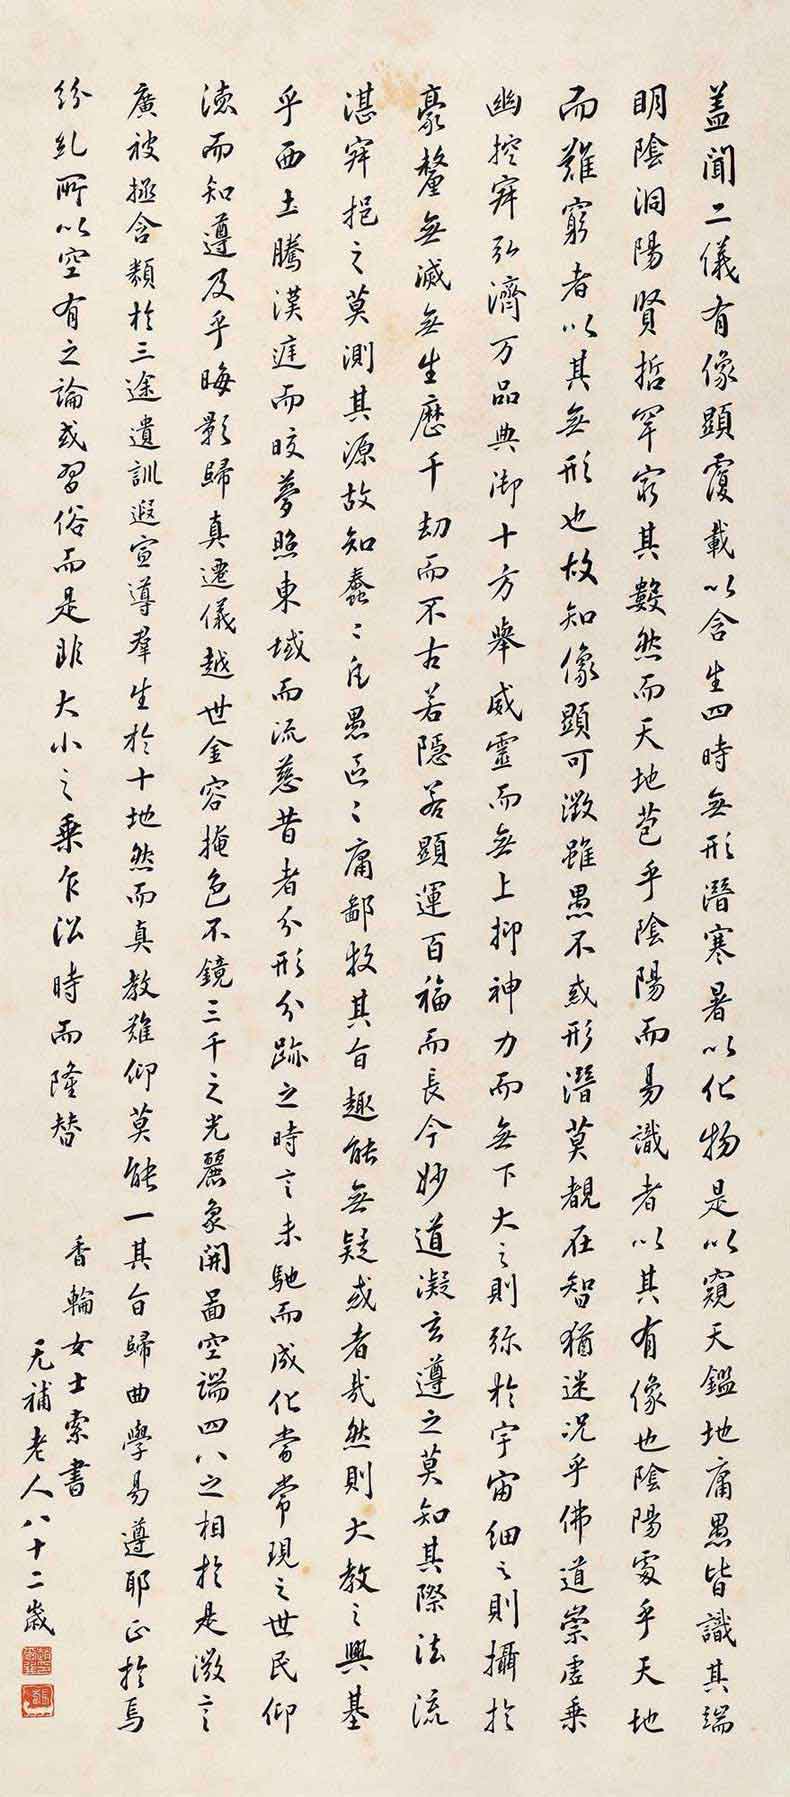 蓋聞二儀有像顯覆載以含生四時無形潛寒暑以化物是以窺天鑑地庸愚皆識其端
明陰洞陽賢哲罕窮其數然而天地苞乎陰陽而易識者以其有像也陰陽處乎天地
而難窮者以其無形也故知像顯可徵雖愚不惑形潛莫覩在智猶迷況乎佛道崇虛乘
幽控寂弘濟万品典御十方舉威靈而無上抑神力而無下大之則彌於宇宙細之則攝於
豪釐無滅無生歷千劫而不古若隱若顯運百福而長今妙道凝玄遵之莫知其際法流
湛寂挹之莫測其源故知蠢〻凡愚區〻庸鄙投其旨趣能無疑惑者哉然則大教之興基
乎西土騰漢庭而皎夢照東域而流慈昔者分形分跡之時言未馳而成化當常現之世民仰
德而知遵及乎晦影歸真遷儀越世金容掩色不鏡三千之光麗象開圖空端四八之相於是微言
廣被拯含類於三途遺訓遐宣導羣生於十地然而真教難仰莫能一其旨歸曲學易遵耶正於焉
紛糺所以空有之論或習俗而是非大小之乘乍沿時而隆替
香輪女士索書
无補老人八十二歲